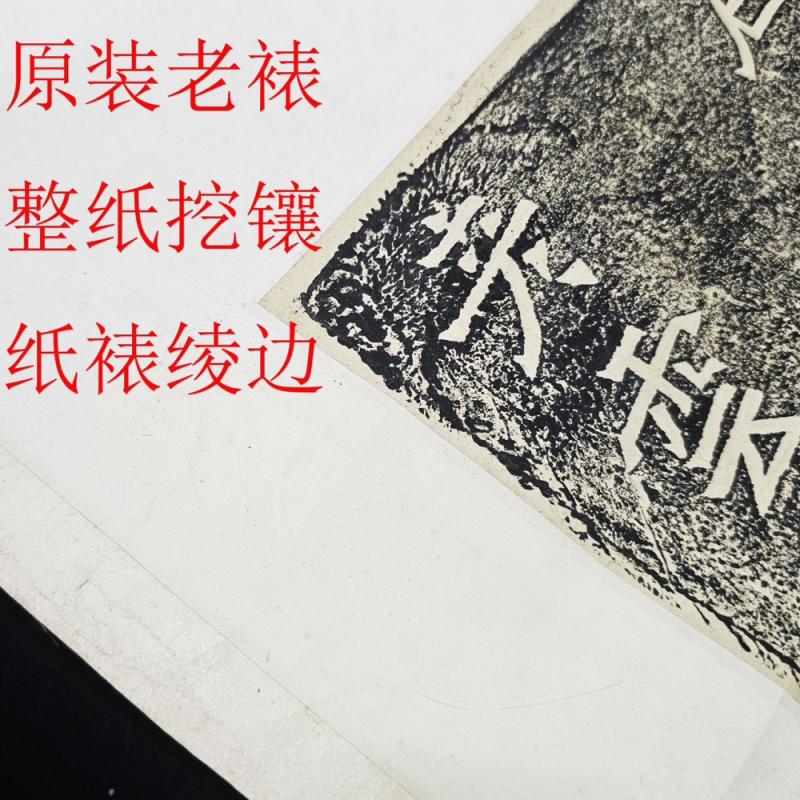 原装老裱
整纸挖镶
纸裱绫边